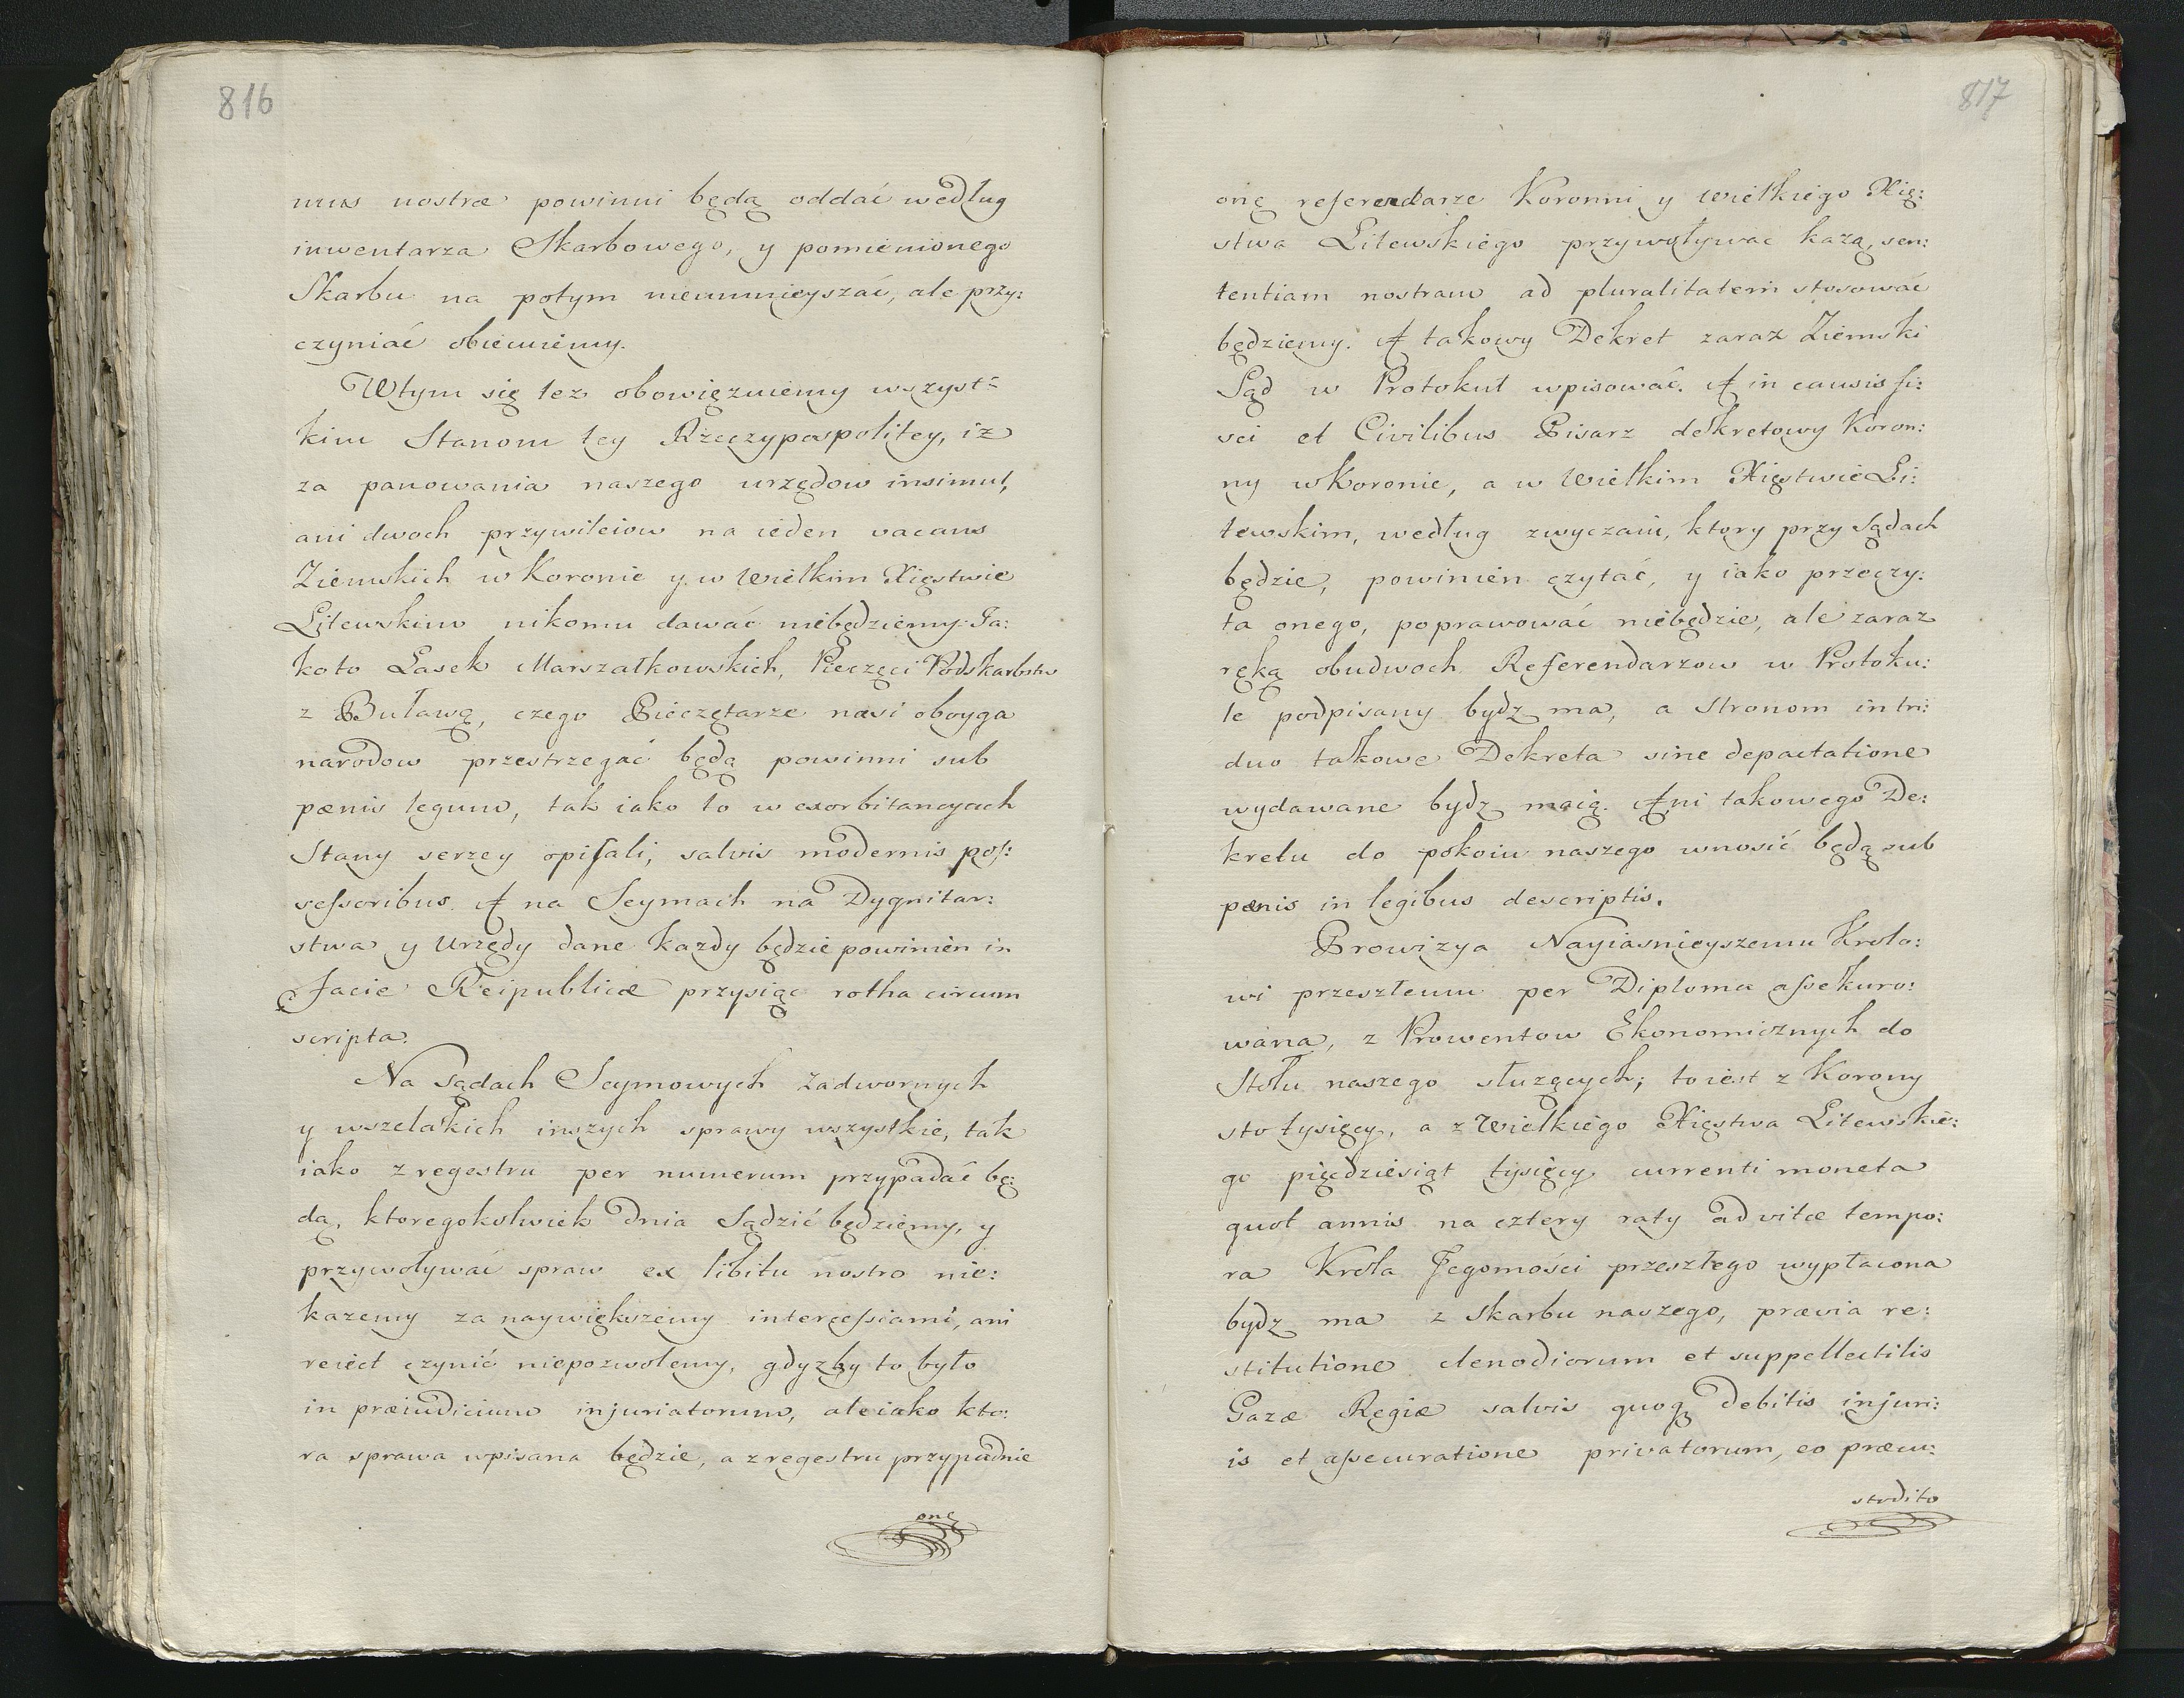 816
mus nostræ powinni będą oddać według
inwentarza Skarbowego, y pomienionego
Skarbu na potym nieumnieyszać, ale przy:
czyniać obiecuiemy.
Wtym się tez obowięzuiemy wszyst:
kim Stanom tey Rzeczypospolitey, iz
za panowania naszego urzędow insimul,
ani dwoch przywileiow na ieden vacans
Ziemskich w Koronie y w Wielkim Xięstwie
Litewskim nikomu dawać niebędziemy. Ja:
koto Lasek Marszałkowskich, Pieczęci Podskarbstw
z Buławą, czego Pieczętarze nasi oboyga
narodow przestrzegać będą powinni sub
pœnis legum, tak iako to w exorbitancyach
Stany serzey opisali, salvis modernis pos:
sessoribus. A na Seymach na Dygnitar:
stwa y Urzędy dane kazdy będzie powinien in
facie Reipublicæ przysiąc rotha circum
scripta.
Na Sądach Seymowych Zadwornych
y wszelakich inszych sprawy wszystkie, tak
iako z regestru per numerum przypadać bę:
dą, ktoregokolwiek dnia Sądzić będziemy, y
przywoływać spraw ex libitu nostro nie:
kazemy za naywiększemy intercessiami, ani
reiect czynić niepozwolemy, gdyzby to było
in præiudicium injuriatorum, ale iako kto:
ra sprawa wpisana będzie, a z regestru przypadnie
onę
817
onę referendarze Koronni y Wielkiego Xię:
stwa Litewskiego przywoływać kazą, sen:
tentiam nostram ad pluralitatem stosować
będziemy. A takowy Dekret zaraz Ziemski
Sąd w Protokuł wpisować. A in causis fi:
sci et Civilibus Pisarz dekretowy Koron:
ny w Koronie, a w Wielkim Xięstwie Li:
tewskim, według zwyczaiu, ktory przy Sądach
będzie, powinien czytać, y iako przeczy:
ta onego, poprawować niebędzie, ale zaraz
ręką obudwoch Referendarzow w Protoku:
le podpisany bydz ma, a Stronom in tri:
duo takowe Dekreta sine depactatione
wydawane bydz maią. Ani takowego De:
kretu do pokoiu naszego wnosić będą sub
pœnis in legibus descriptis.
Prowizya Nayiasnieyszemu Krolo:
wi przeszłemu per Diploma assekuro:
wana, z Prowentow Ekonomicznych do
Stołu naszego słuzących; toiest z Korony
sto tysięcy, a z Wielkiego Xięstwa Litewskie:
go pięćdziesiąt tysięcy currenti moneta
quot annis na cztery raty ad vitæ tempo:
ra Krola Jegomości przeszłego wypłacona
bydz ma z Skarbu naszego, prævia re:
stitutione clenodiorum et suppellectilis
Gazæ Regiæ salvis quoq debitis injuri:
is et assecuratione privatorum, eo præcu:
stodito